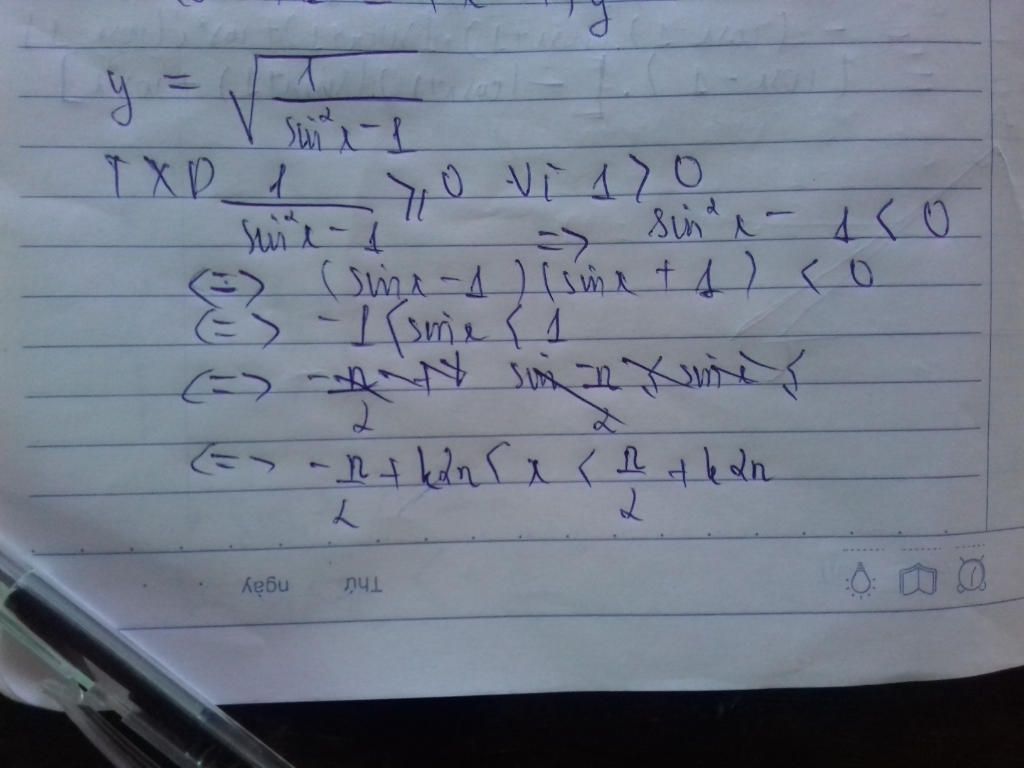 y = √(1/(sin²x - 1))
TXD 1/(sin²x - 1) ⩾ 0 vì 1 > 0
=> sin²x - 1 < 0
<=> (sinx - 1)(sinx + 1) < 0
<=> -1 < sinx < 1
<=> -π/2 + k2π < x < π/2 + k2π
Thứ ngày